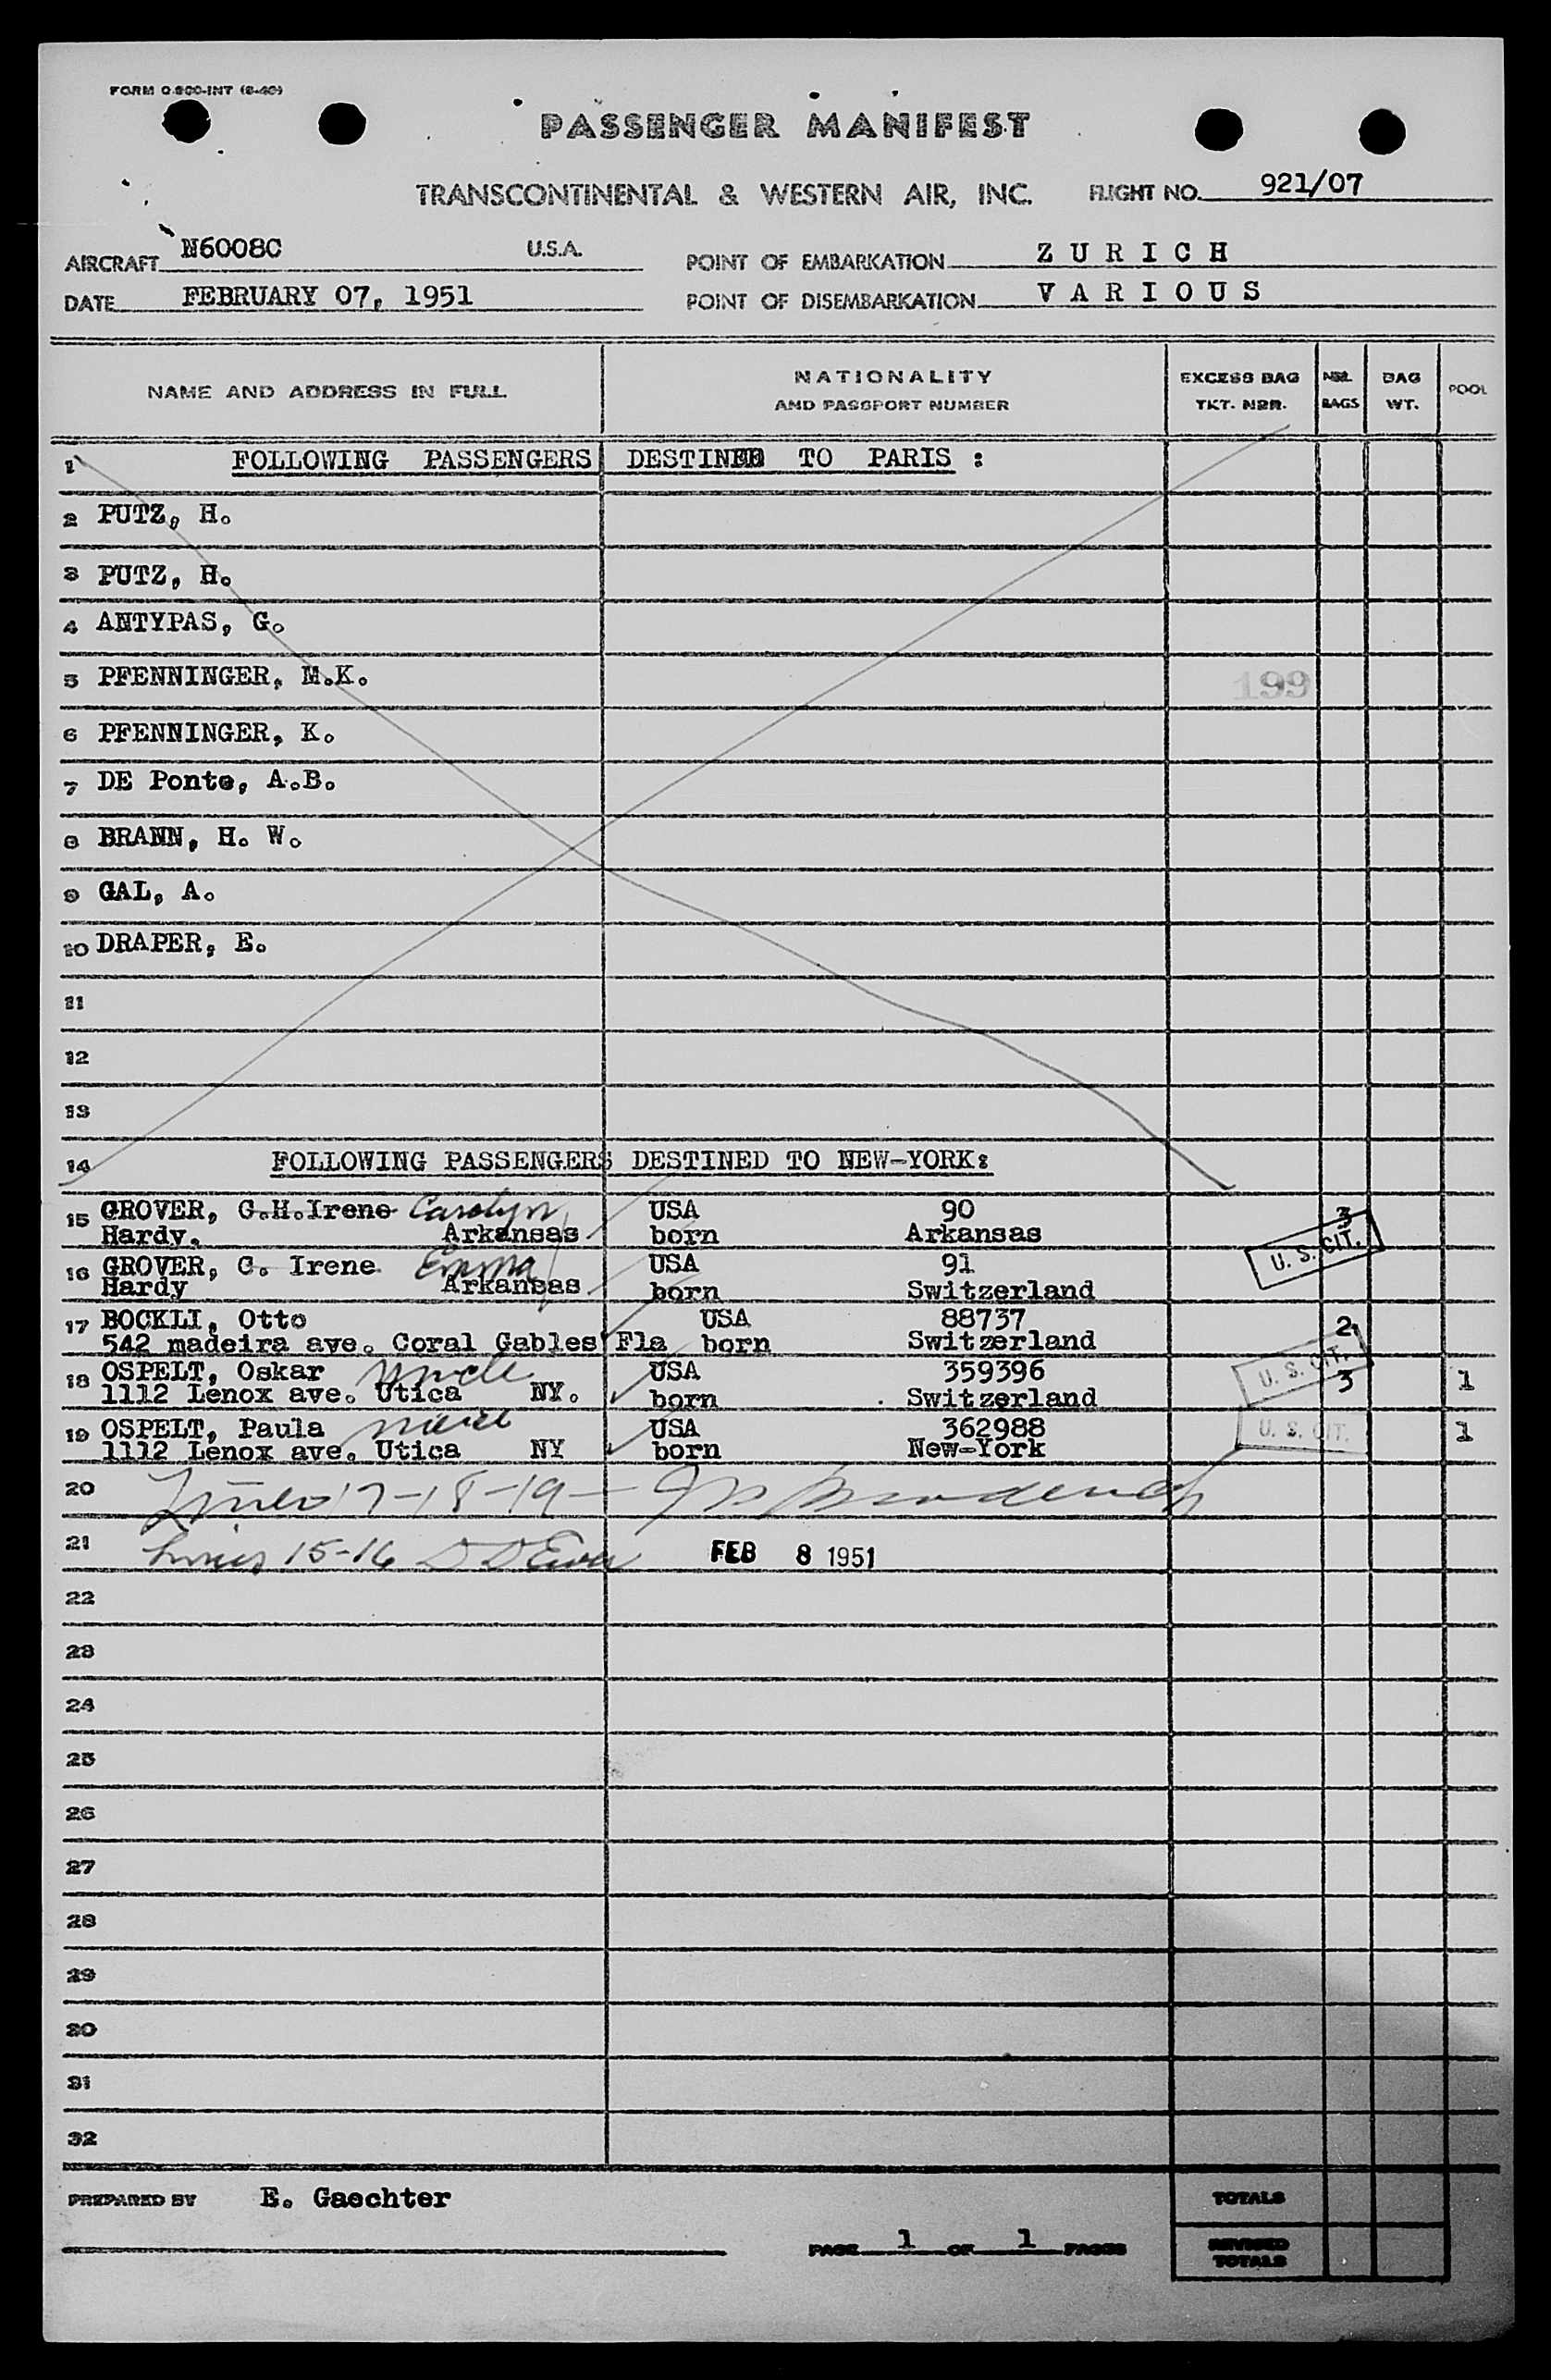 FORM O-800-INT (8-49)
PASSENGER MANIFEST
TRANSCONTINENTAL & WESTERN AIR, INC. FLIGHT NO. 921/07
AIRCRAFT N6008C U.S.A. POINT OF EMBARKATION Z U R I C H
DATE FEBRUARY 07, 1951 POINT OF DISEMBARKATION V A R I O U S
NAME AND ADDRESS IN FULL NATIONALITY AND PASSPORT NUMBER EXCESS BAG TKT. NBR. NBR. BAGS BAG WT. POOL
1 FOLLOWING PASSENGERS DESTINED TO PARIS :
2 PUTZ, H.
3 PUTZ, H.
4 ANTYPAS, G.
5 PFENNINGER, M.K. 199
6 PFENNINGER, K.
7 DE Ponte, A.B.
8 BRANN, H. W.
9 GAL, A.
10 DRAPER, E.
11
12
13
14 FOLLOWING PASSENGERS DESTINED TO NEW-YORK:
15 GROVER, G.H.Irene Carolyn USA 90 3
Hardy. Arkansas born Arkansas U. S. CIT.
16 GROVER, C. Irene Emma USA 91
Hardy Arkansas born Switzerland
17 BOCKLI, Otto USA 88737 2
542 madeira ave. Coral Gables Fla born Switzerland
18 OSPELT, Oskar USA 359396 U. S. CIT. 3 1
1112 Lenox ave. Utica NY. born Switzerland
19 OSPELT, Paula USA 362988 U. S. CIT. 1
1112 Lenox ave. Utica NY born New-York
20 Lines 17-18-19-
21 Lines 15-16 FEB 8 1951
22
23
24
25
26
27
28
29
30
31
32
PREPARED BY E. Gaechter TOTALS
PAGE 1 OF 1 PAGES REVISED TOTALS